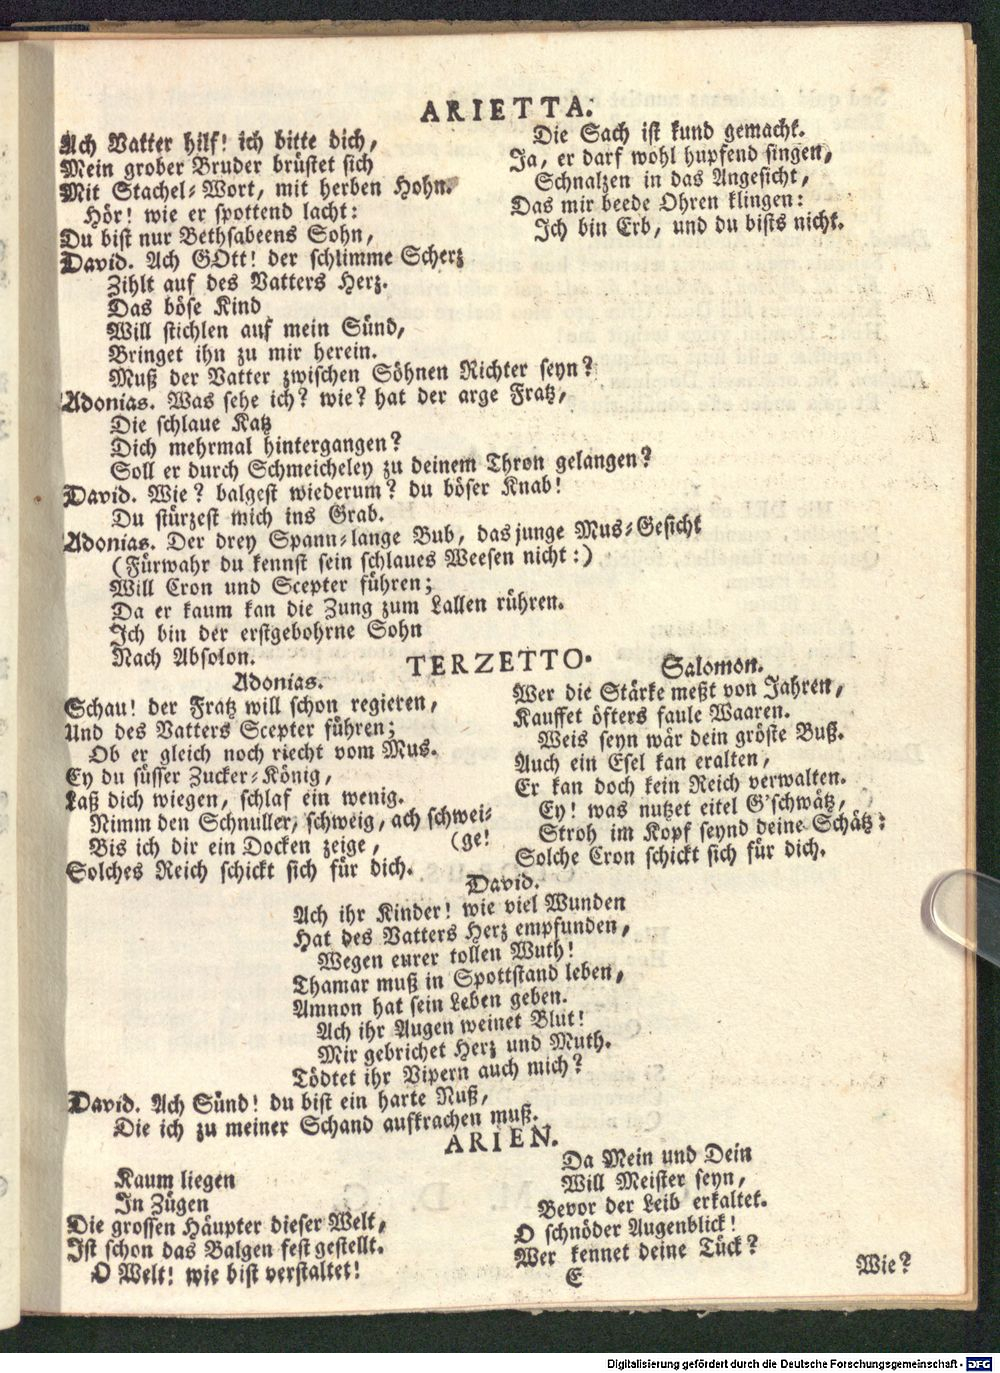 ARIETTA.
Ach Vatter hilf! ich bitte dich,
Mein grober Bruder brüstet sich
Mit Stachel-Wort, mit herben Hohn.
Hör! wie er spottend lacht:
Du bist nur Bethsabeens Sohn,
Die Sach ist kund gemacht.
Ja, er darf wohl hupfend singen,
Schnalzen in das Angesicht,
Das mir beede Ohren klingen:
Ich bin Erb, und du bists nicht.
David. Ach GOtt! der schlimme Scherz
Zihlt auf des Vatters Herz.
Das böse Kind
Will stichlen auf mein Sünd,
Bringet ihn zu mir herein.
Muß der Vatter zwischen Söhnen Richter seyn?
Adonias. Was sehe ich? wie? hat der arge Fratz,
Die schlaue Katz
Dich mehrmal hintergangen?
Soll er durch Schmeicheley zu deinem Thron gelangen?
David. Wie? balgest wiederum? du böser Knab!
Du stürzest mich ins Grab.
Adonias. Der drey Spann-lange Bub, das junge Mus-Gesicht
(Fürwahr du kennst sein schlaues Weesen nicht:)
Will Cron und Scepter führen;
Da er kaum kan die Zung zum Lallen rühren.
Ich bin der erstgebohrne Sohn
Nach Absolon.
TERZETTO.
Adonias.
Schau! der Fratz will schon regieren,
Und des Vatters Scepter führen;
Ob er gleich noch riecht vom Mus.
Ey du süsser Zucker-König,
Laß dich wiegen, schlaf ein wenig.
Nimm den Schnuller, schweig, ach schwei-
(ge!
Bis ich dir ein Docken zeige,
Solches Reich schickt sich für dich.
Salomon.
Wer die Stärke meßt von Jahren,
Kauffet öfters faule Waaren.
Weis seyn wär dein gröste Buß.
Auch ein Esel kan eralten,
Er kan doch kein Reich verwalten.
Ey! was nutzet eitel G'schwätz,
Stroh im Kopf seynd deine Schätz:
Solche Cron schickt sich für dich.
David.
Ach ihr Kinder! wie viel Wunden
Hat des Vatters Herz empfunden,
Wegen eurer tollen Wuth!
Thamar muß in Spottstand leben,
Amnon hat sein Leben geben.
Ach ihr Augen weinet Blut!
Mir gebrichet Herz und Muth.
Tödtet ihr Vipern auch mich?
David. Ach Sünd! du bist ein harte Nuß,
Die ich zu meiner Schand aufkrachen muß.
ARIEN.
Kaum liegen
In Zügen
Die grossen Häupter dieser Welt,
Ist schon das Balgen fest gestellt.
O Welt! wie bist verstaltet!
Da Mein und Dein
Will Meister seyn,
Bevor der Leib erkaltet.
O schnöder Augenblick!
Wer kennet deine Tück?
E
Wie?
Digitalisierung gefördert durch die Deutsche Forschungsgemeinschaft - DFG